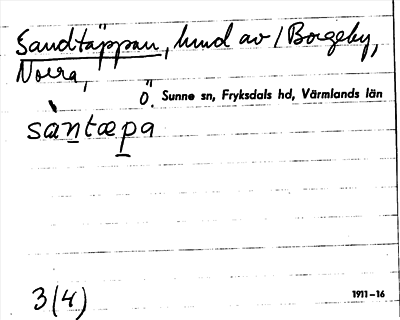 Sandtäppan, lund av / Borgeby,
Norra,
Ö. Sunne sn, Fryksdals hd, Värmlands län
sàntæpa
3(4) 1911–16